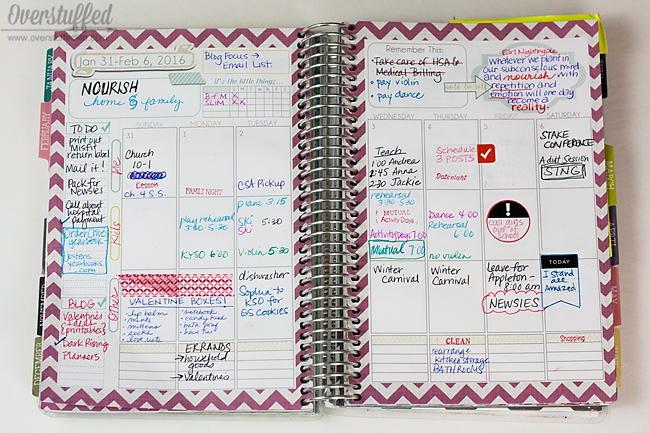 Overstuffed
www.overstuf
JANUARY
FEBRUARY
DECEMBER
MARCH
MAY
Jan 31-Feb 6, 2016
Blog Focus →
Email List
it's the little things...
NOURISH
home & family
M T W T F S S
B+M X X
SLIM X X
TO DO
print out
Misfit
return label
Mail it!
Pack for
Newsies
Call about
hospital
payment
Order Chloe's
yearbook
Jostens
yearbooks
.com
BLOG
Valentines
ideas
printables
Dark Rising
Planners
me
Kids
Other
SUNDAY
MONDAY
TUESDAY
31
1
2
Church
10-1
Lesson
Ch. 4 S.S.
FAMILY NIGHT
CSA Pickup
play rehearsal
3:30 - 5:30
KYSO 6:00
piano 3:15
Ski 5:30
Ski
Violin 5:30
VALENTINE BOXES!
• lip balm
• mints
• mittens
• socks
• love note
• notebook
• candy kind
• bath prod
• hair tie
dishwasher
Sophia - to
KSO for
GS Cookies
ERRANDS
→ household
goods
→ Valentines
Remember This:
Take care of HSA &
Medical Billing
• pay violin
• pay dance
Earl Nightingale
Whatever we plant in
our subconscious mind
and nourish with
repetition and
emotion will one day
become a
reality.
WEDNESDAY
THURSDAY
FRIDAY
SATURDAY
3
4
5
6
Teach
1:00 Andrea
1:45 Anna
2:30 Jackie
Schedule
3 POSTS
Date night
STAKE
CONFERENCE
Adult Session
SING!
rehearsal
3:30 - 5:30
MUTUAL
Activity Days
Activity Days 4:00
Mutual 7:00
Dance 4:00
Rehearsal
6:00
no violin
!
Call girls
Out of
School
Winter
Carnival
Winter
Carnival
Leave for
Appleton -
8:00 am
NEWSIES
TODAY
I Stand
all
Amazed
CLEAN
rearrange
Kitchen storage
BATHROOMS
Shopping